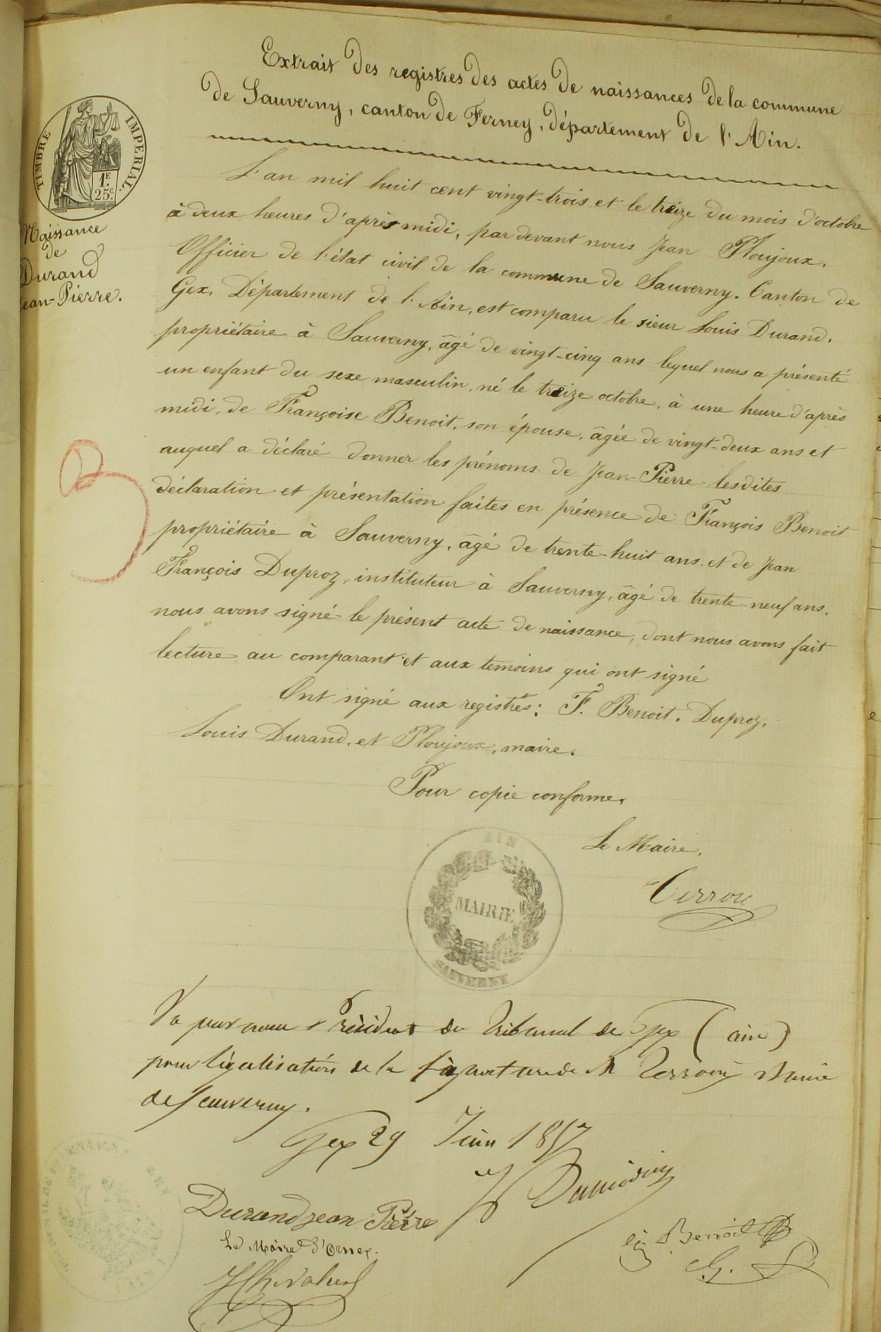 Extrait des registres des actes de naissances de la commune
de Sauverny, canton de Ferney, département de l'Ain.
TIMBRE IMPERIAL.
1F.
25c
Naissance
de
Durand
Jean-Pierre.
L'an mil huit cent vingt-trois et le treize du mois d'octobre
à deux heures d'après midi, par devant nous Jean Ploujoux.
Officier de l'état civil de la commune de Sauverny. Canton de
Gex, Département de l'Ain, est comparu le sieur Louis Durand,
propriétaire à Sauverny, âgé de vingt-cinq ans lequel nous a présenté
un enfant du sexe masculin, né le treize octobre, à une heure d'après
midi, de Françoise Benoit, son épouse, âgée de vingt-deux ans et
auquel a déclaré donner les prénoms de Jean-Pierre lesdites
déclaration et présentation faites en présence de François Benoit
propriétaire à Sauverny, âgé de trente-huit ans et de Jean
François Duproz, instituteur à Sauverny, âgé de trente neuf ans.
nous avons signé le présent acte de naissance, dont nous avons fait
lecture au comparant et aux temoins qui ont signé
Ont signé aux registres: F. Benoit. Duproz.
Louis Durand, et Ploujoux, maire.
Pour copie conforme.
Le Maire.
AIN
MAIRIE
SAUVERNY
Vu par nous Président du Tribunal de Gex (ain)
pour légalisation de la signature de M Maire
de Sauverny.
Gex 29 Juin 1857
Durand jean Pierre
Le Maire d'Ornex
Benoit